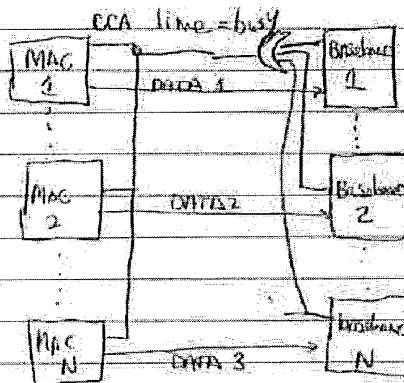 CCA line = busy
MAC
1
DATA 1
Baseband
1
MAC
2
DATA 2
Baseband
2
MAC
N
DATA 3
Baseband
N